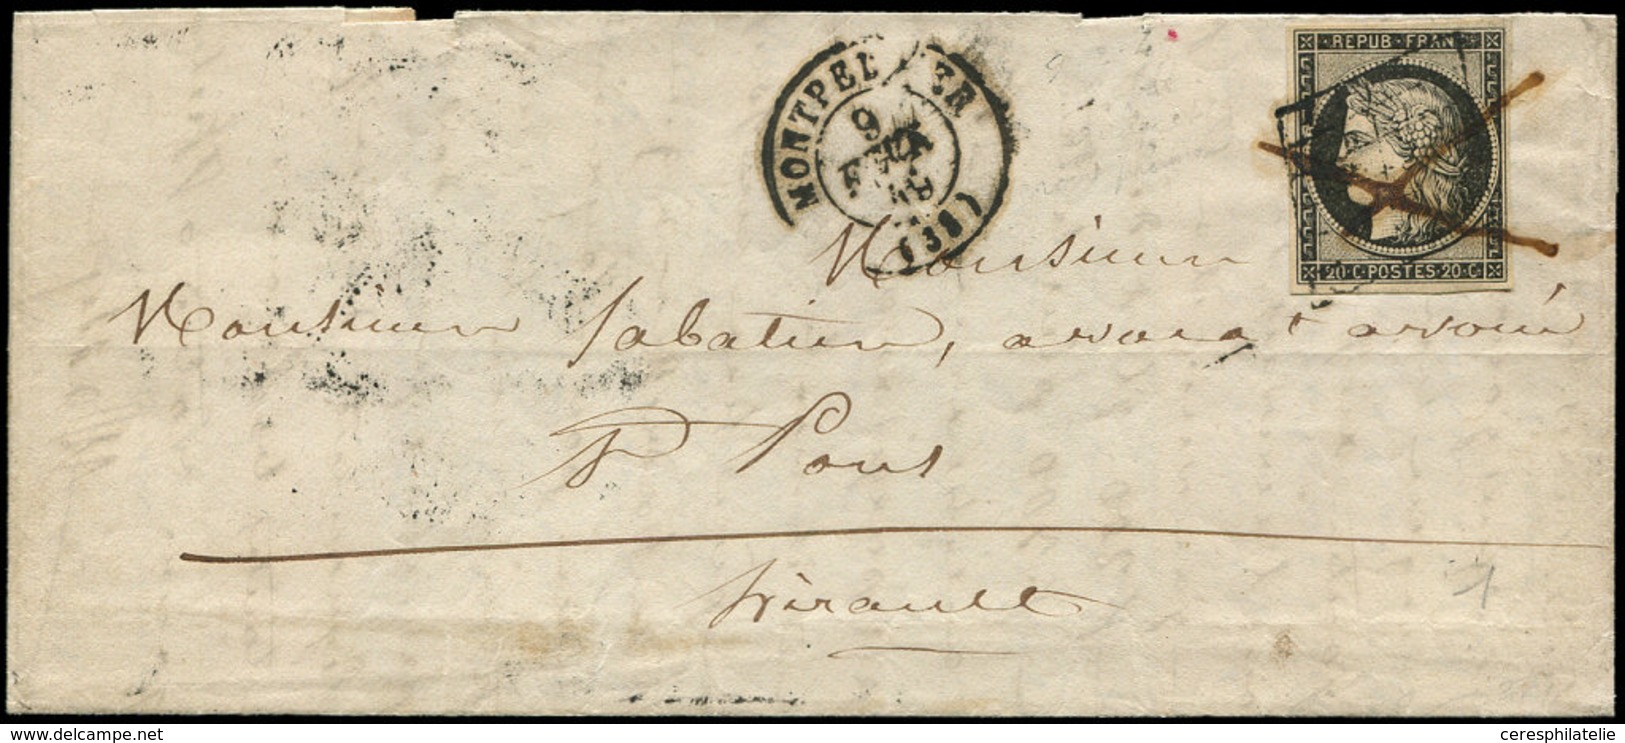 MONTPELLIER
9
FEVR
49
(33)
REPUB FRANC
20·C·POSTES·20·C
Monsieur
Monsieur Sabatier, avocat avoué
St Pons
hérault
ceresphilatelie